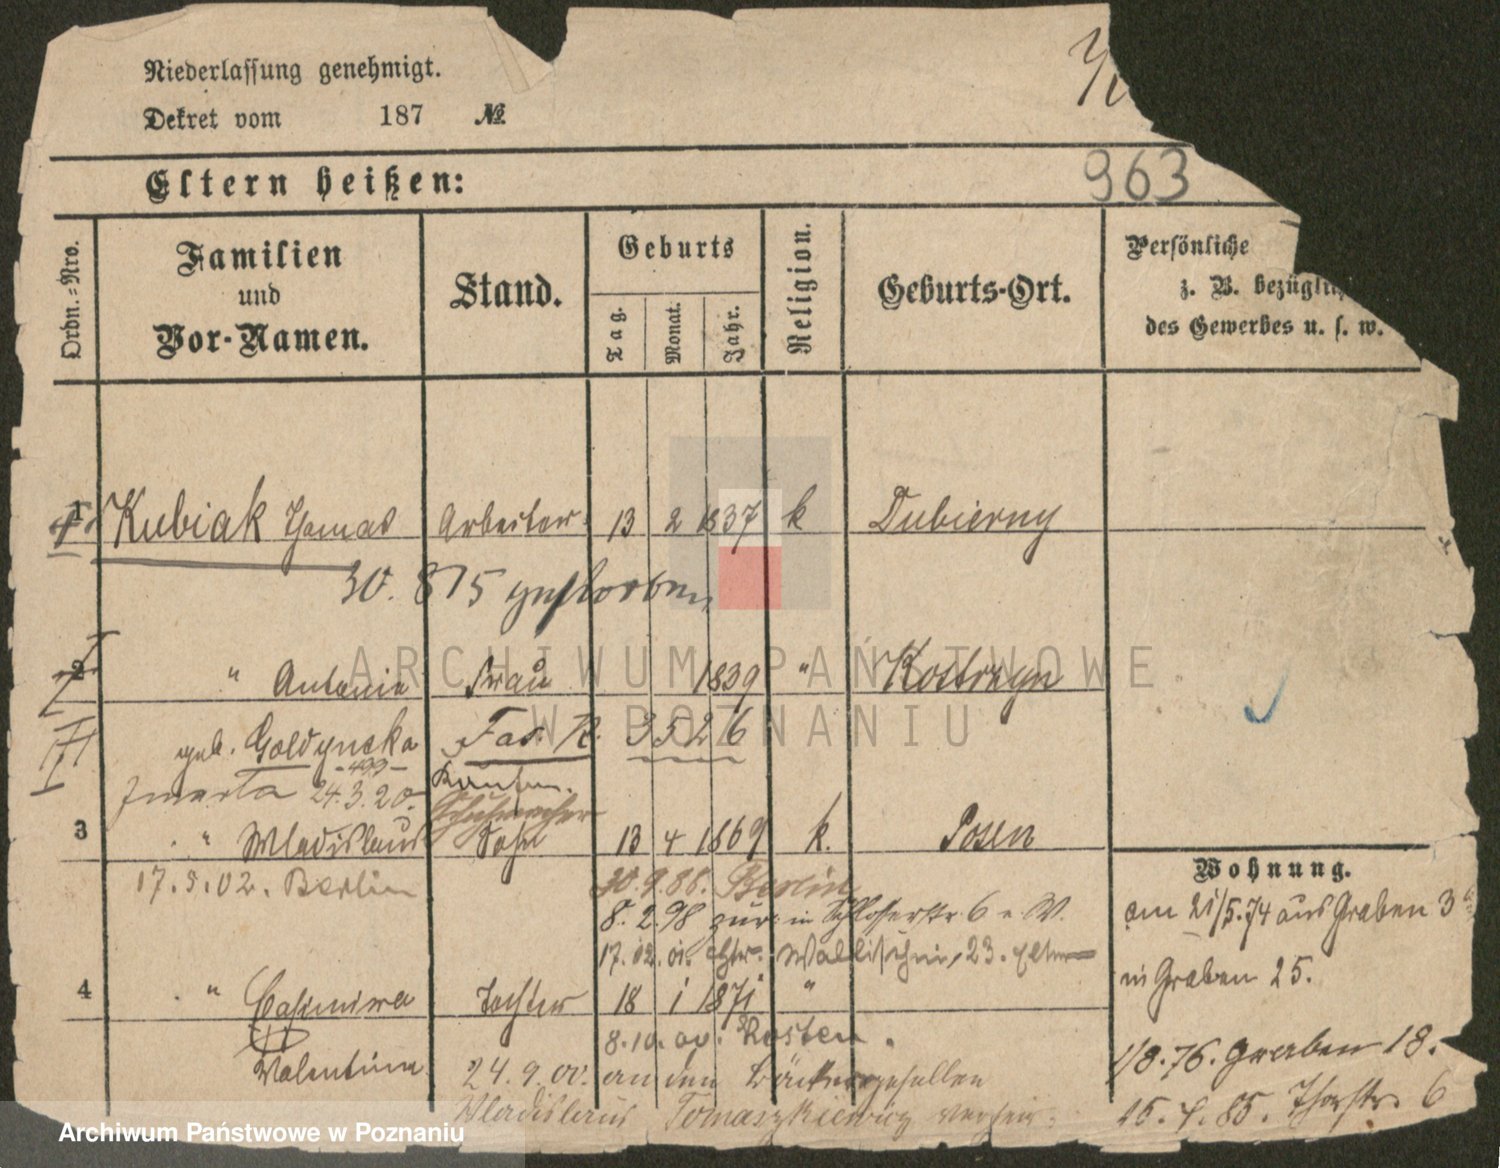 Niederlassung genehmigt.
Dekret vom 187 №
963
Eltern heißen:
Ordn.-Nro.
Familien
und
Vor-Namen.
Stand.
Geburts
Tag.
Monat.
Jahr.
Religion.
Geburts-Ort.
Persönliche
z. B. bezüglich
des Gewerbes u. s. w.
1 Kubiak Thomas Arbeiter 13 2 1837 k Dubierny
30. 8 75 gestorben
2 " Antonie Frau 1839 " Kostrzyn
geb. Goldynska Fas. R. 3526
-499-
zmarła 24.3.20.
Schuhmacher
3 " Wladislaus Sohn 13 4 1869 k. Posen
17.5.02. Berlin 30.9.88. Berlin
8.2.98 zur: in Schlosserstr. 6 W.
17.02.01. Wallischei, 23. Eltern
4 " Casimira Tochter 18 1 1871 "
Valentina
8.10. Kosten.
24.9.00. an den Bäckergesellen
Wladislaus Tomaszkiewicz verheir.
Wohnung.
am 21/5.74 aus Graben 3
in Graben 25.
1/8.76. Graben 18.
15. 85. Thorstr. 6
ARCHIWUM PAŃSTWOWE
W POZNANIU
Archiwum Państwowe w Poznaniu